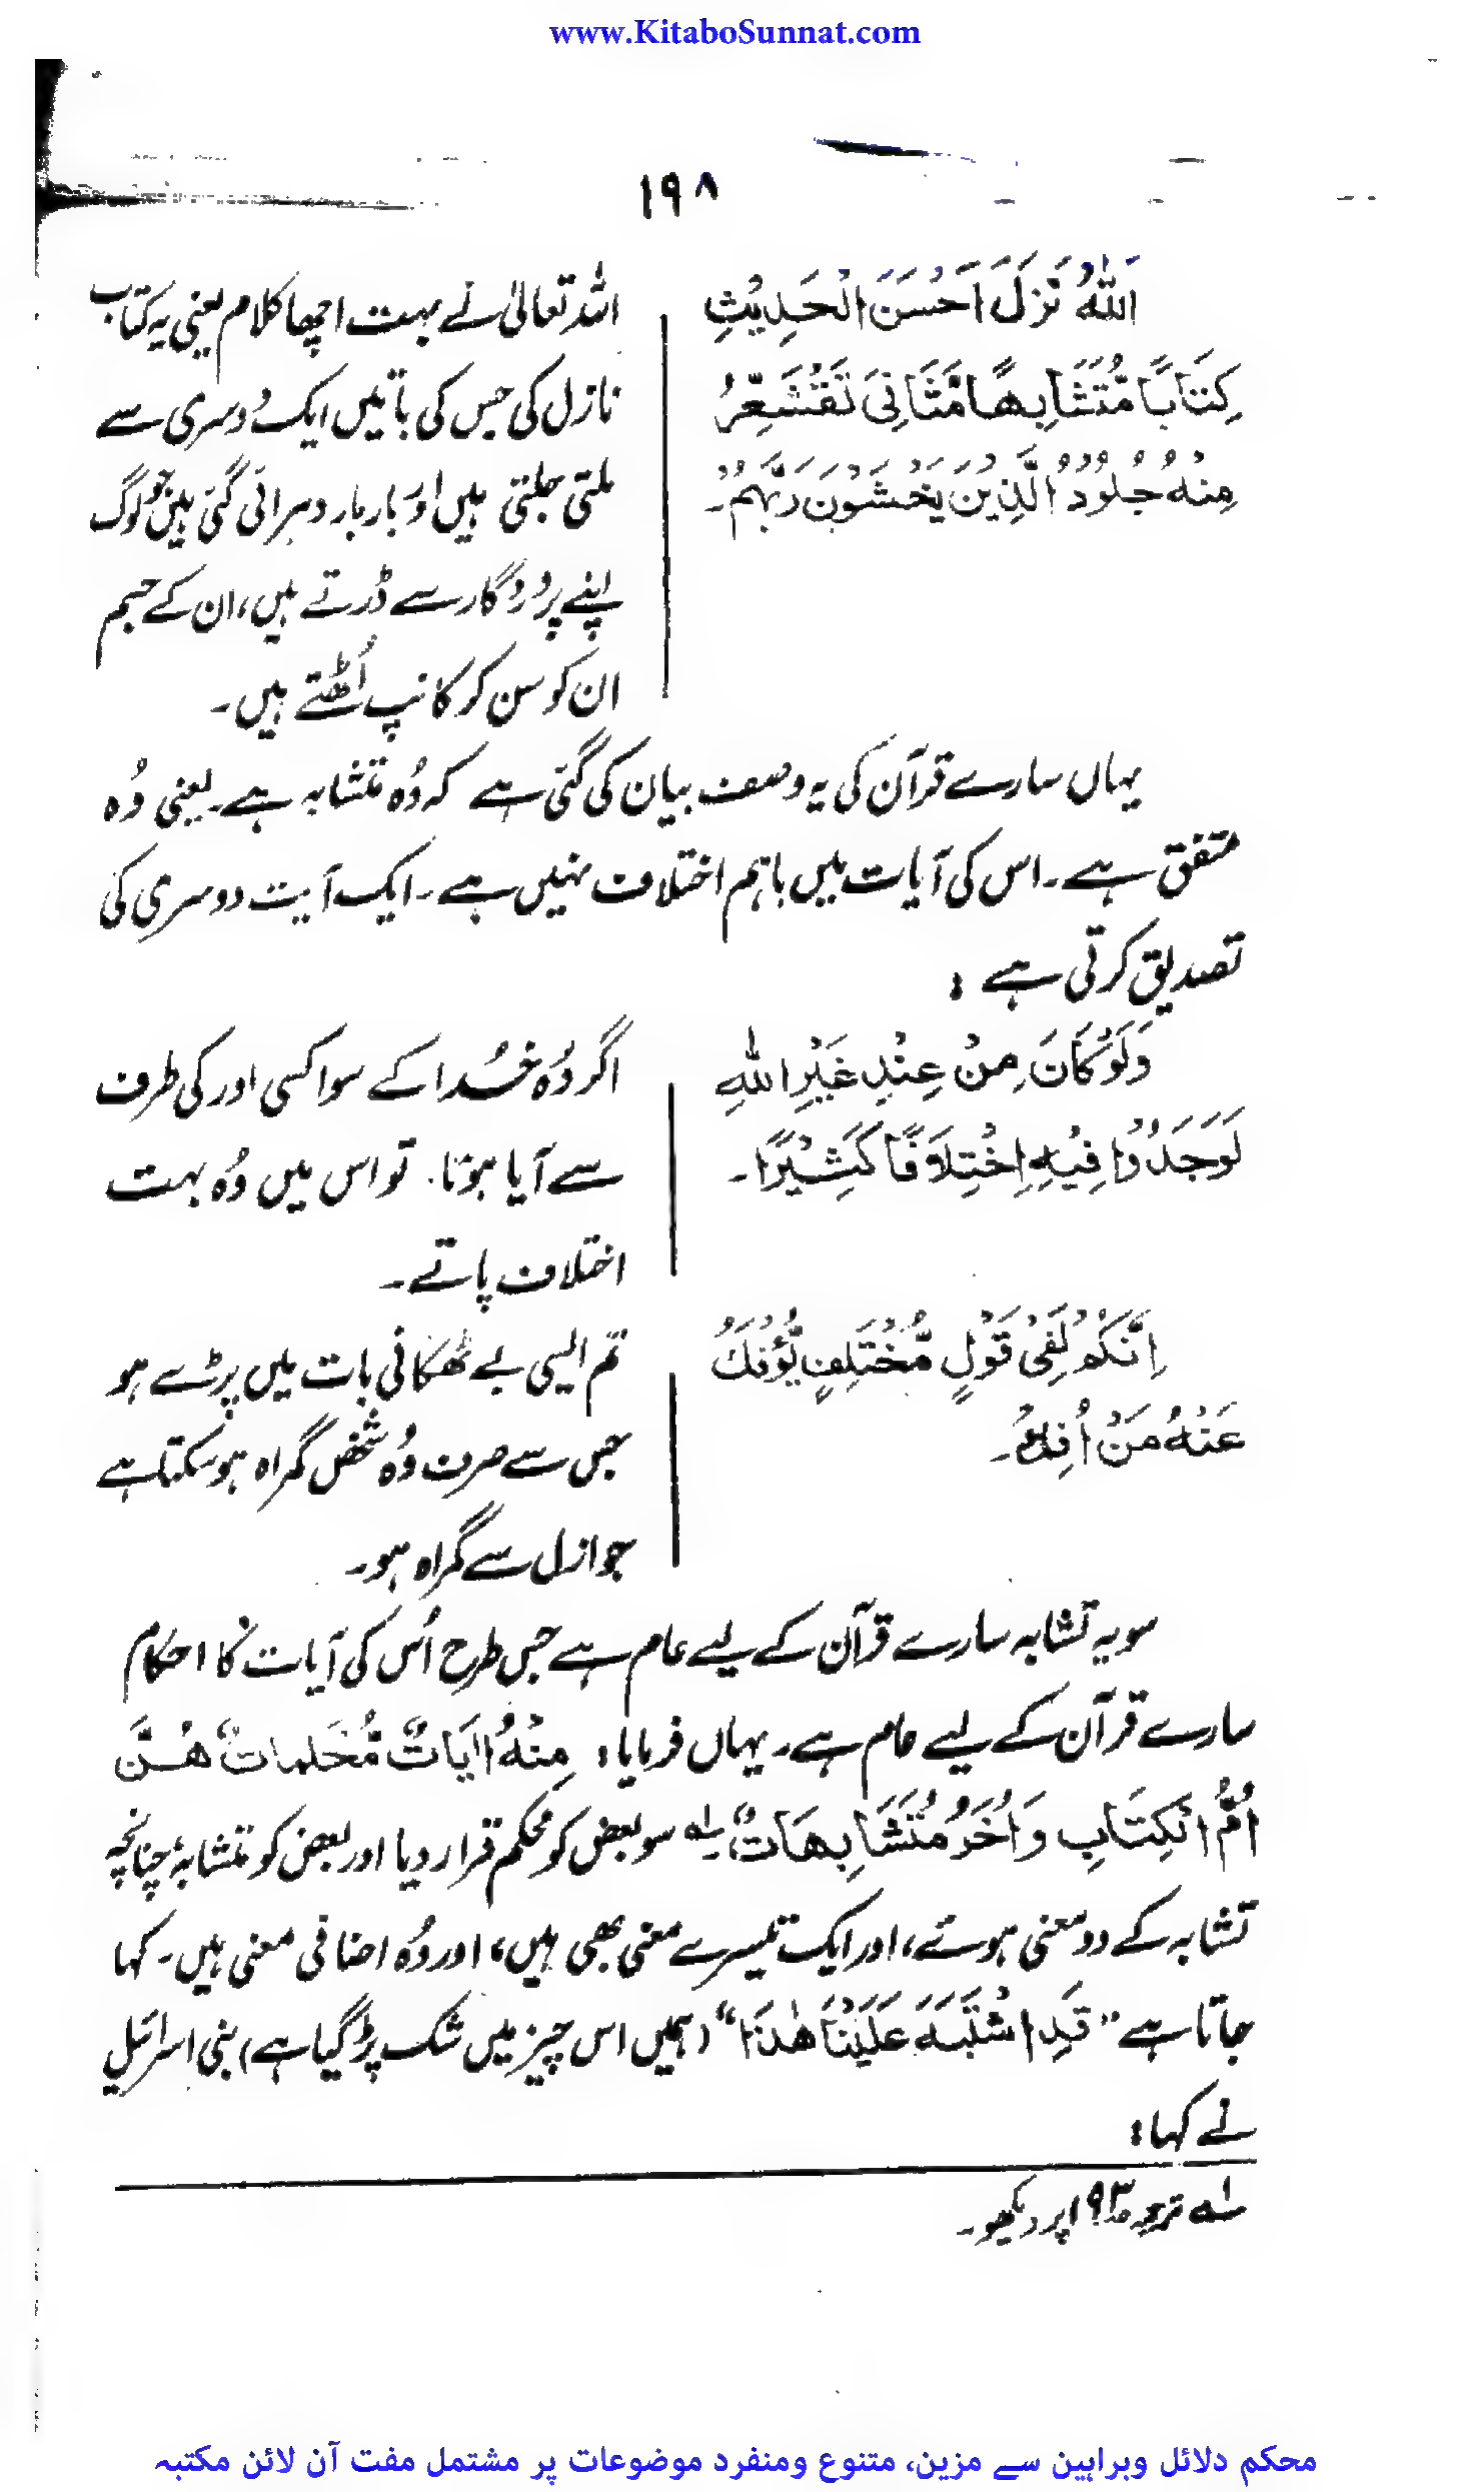 www.KitaboSunnat.com
۱۹۸
اَللّٰهُ نَزَّلَ اَحْسَنَ الْحَدِیْثِ
كِتَابًا مُّتَشَابِهًا مَّثَانِیَ تَقْشَعِرُّ
مِنْهُ جُلُوْدُ الَّذِیْنَ یَخْشَوْنَ رَبَّهُمْ۔
اللہ تعالیٰ نے بہت اچھا کلام یعنی یہ کتاب
نازل کی جس کی باتیں ایک دُوسری سے
ملتی جلتی ہیں اور بار بار دہرائی گئی ہیں جو لوگ
اپنے پروردگار سے ڈرتے ہیں، ان کے جسم
ان کو سن کر کانپ اُٹھتے ہیں۔
یہاں سارے قرآن کی یہ وصف بیان کی گئی ہے کہ وُہ متشابہ ہے۔ یعنی وُہ
متفق ہے۔ اس کی آیات میں باہم اختلاف نہیں ہے۔ ایک آیت دوسری کی
تصدیق کرتی ہے :
وَلَوْ كَانَ مِنْ عِنْدِ غَیْرِ اللّٰهِ
لَوَجَدُوْا فِیْهِ اِخْتِلَافًا كَثِیْرًا۔
اگر وُہ خُدا کے سوا کسی اور کی طرف
سے آیا ہوتا۔ تو اس میں وُہ بہت
اختلاف پاتے۔
اِنَّكُمْ لَفِیْ قَوْلٍ مُّخْتَلِفٍ یُّؤْفَكُ
عَنْهُ مَنْ اُفِكَ۔
تم ایسی بے ٹھکانی بات میں پڑے ہو
جس سے صرف وُہ شخص گمراہ ہو سکتا ہے
جو ازل سے گمراہ ہو۔
سو یہ تشابہ سارے قرآن کے لیے عام ہے جس طرح اُس کی آیات کا احکام
سارے قرآن کے لیے عام ہے۔ یہاں فرمایا : مِنْهُ اٰیَاتٌ مُّحْكَمَاتٌ هُنَّ
اُمُّ الْكِتَابِ وَاُخَرُ مُتَشَابِهَاتٌ لہ سو بعض کو محکم قرار دیا اور بعض کو متشابہ، چنانچہ
تشابہ کے دو معنی ہوئے، اور ایک تیسرے معنی بھی ہیں، اور وُہ اضافی معنی ہیں۔ کہا
جاتا ہے "قَدِ اشْتَبَهَ عَلَیْنَا هٰذَا" (ہمیں اس چیز میں شک پڑ گیا ہے) بنی اسرائیل
نے کہا :
لہ ترجمہ ص۱۹۳ پر دیکھو۔
محکم دلائل وبراہین سے مزین، متنوع ومنفرد موضوعات پر مشتمل مفت آن لائن مکتبہ